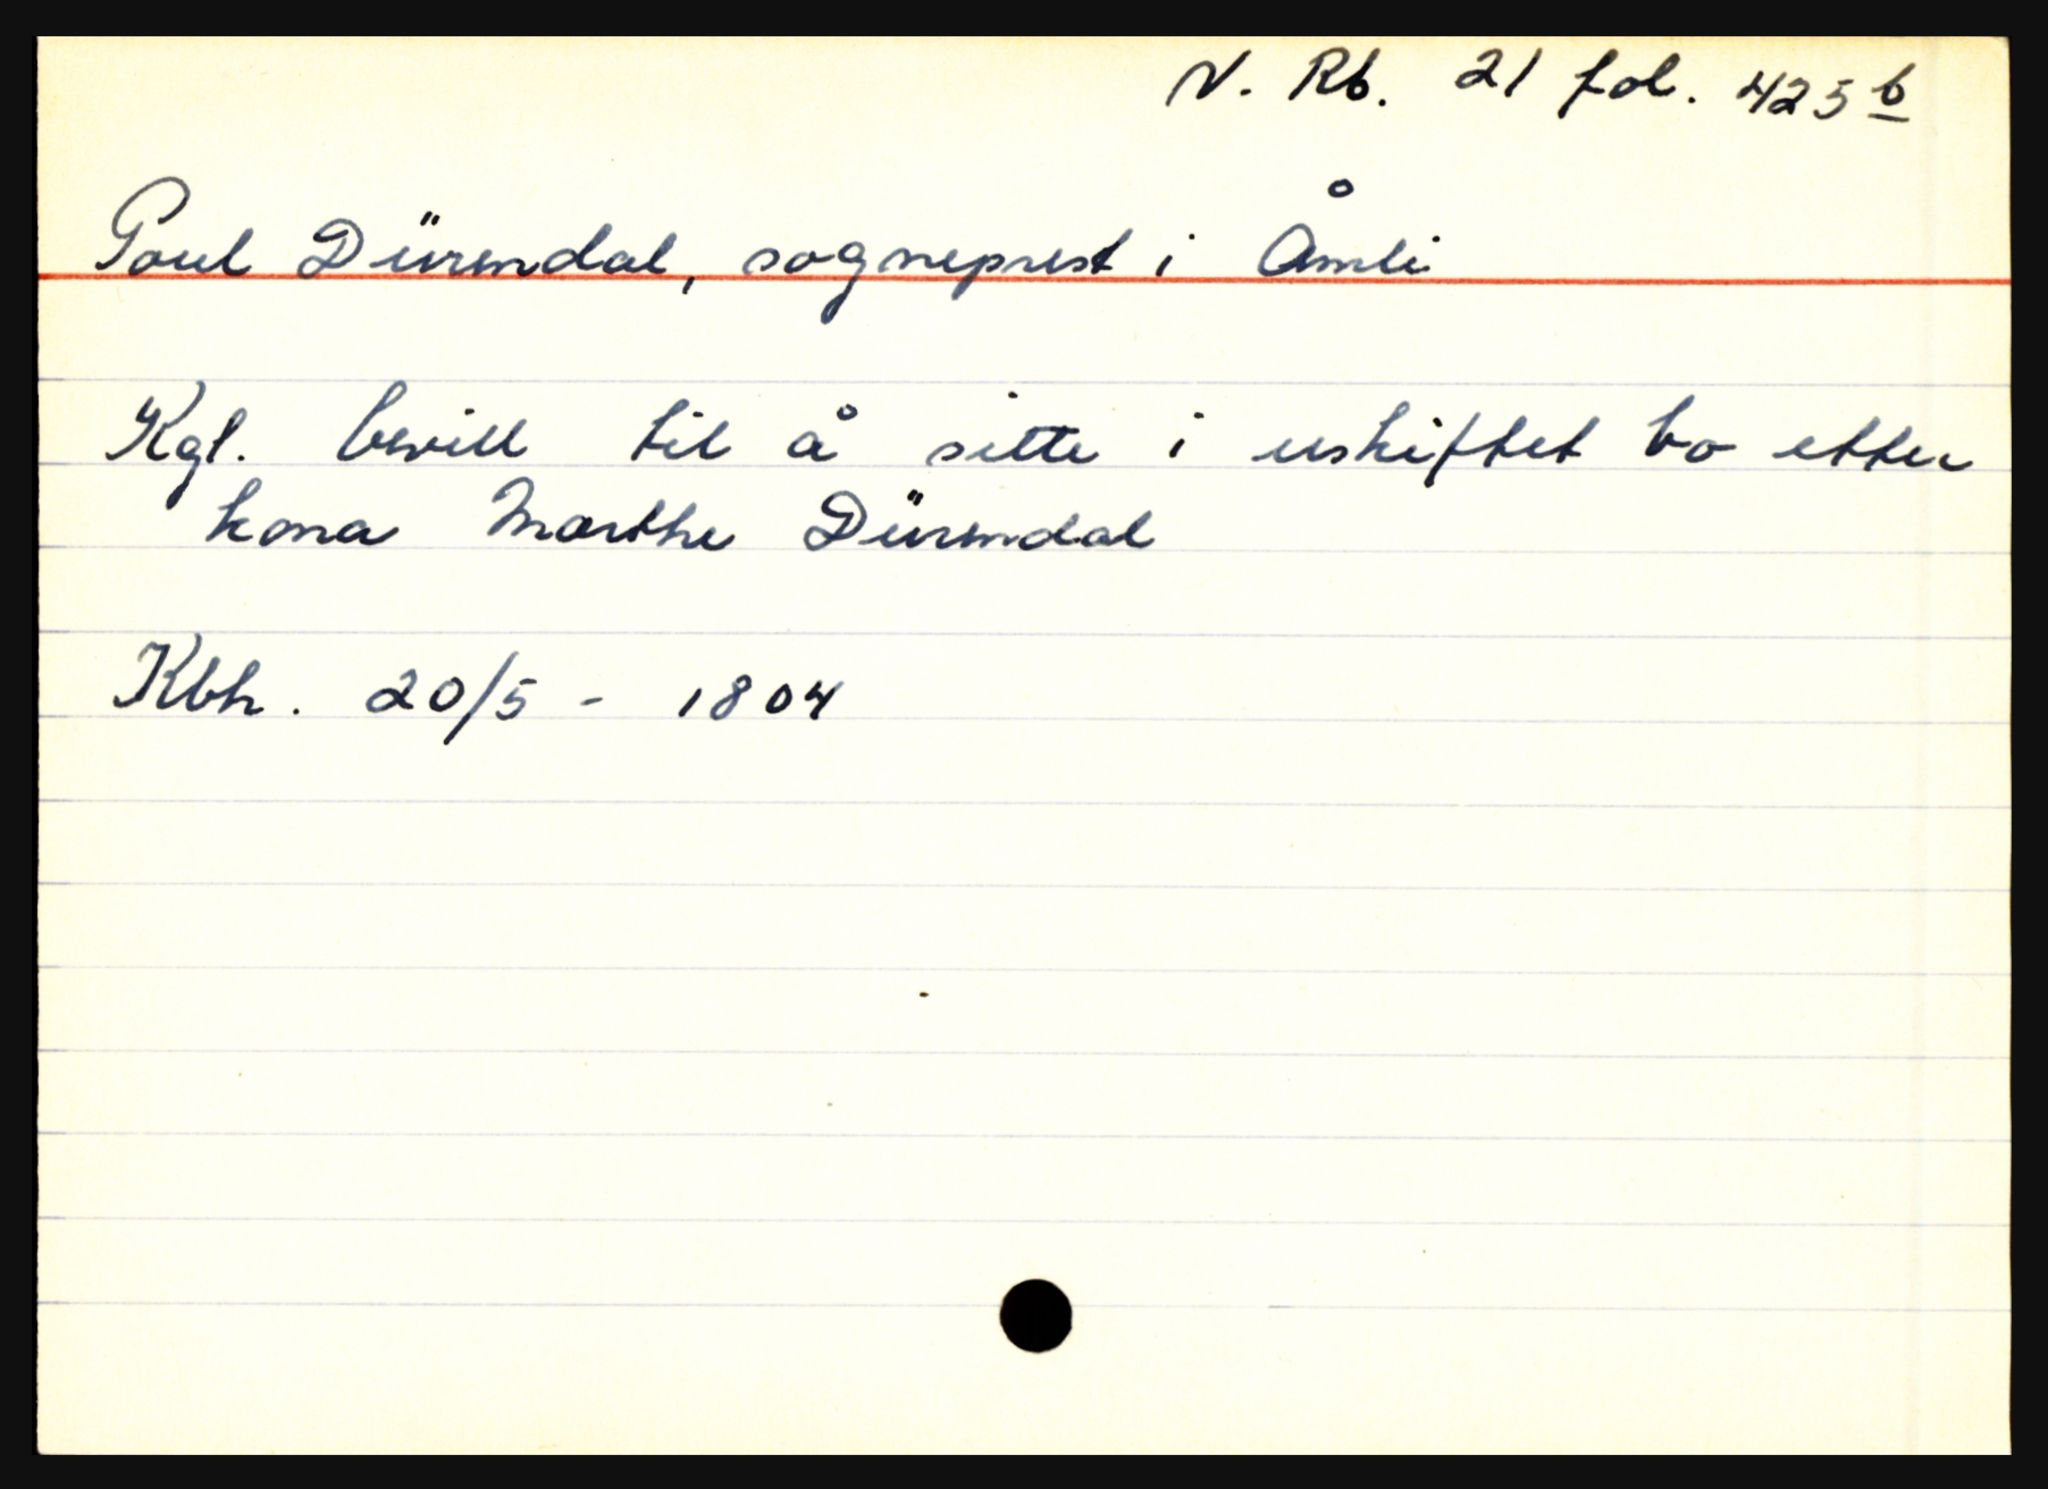 N. Rb. 21 fol. 425 b
Poul Dürendal, sogneprest i Åmli
Kgl. bevill til å sitte i uskiftet bo etter
kona Marthe Dürendal
Kbh. 20/5 - 1804